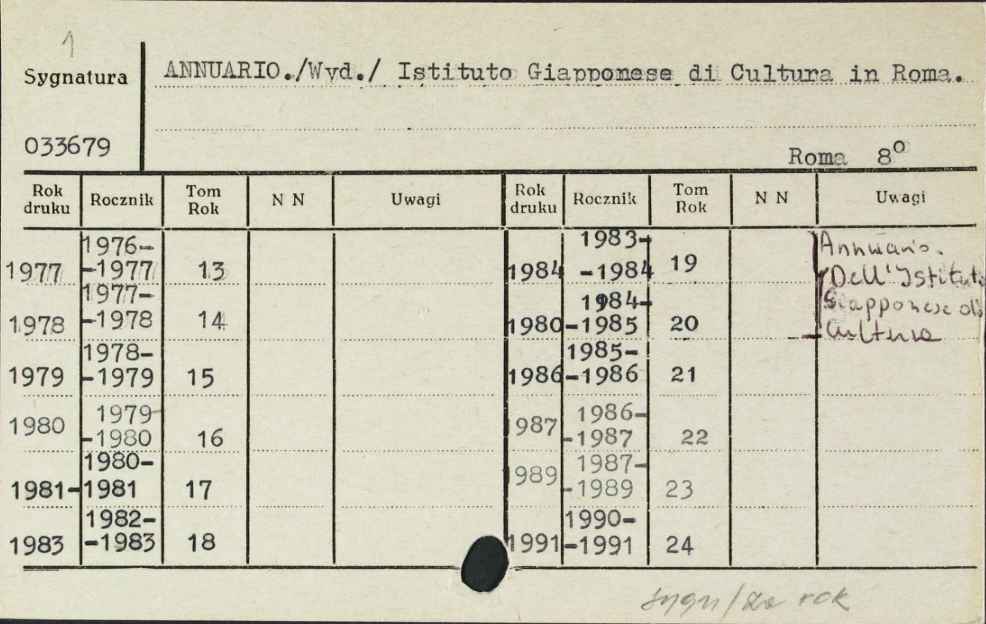 1
Sygnatura
ANNUARIO./Wyd./ Istituto Giapponese di Cultura in Roma.
033679
Roma 8º
Rok druku Rocznik Tom Rok N N Uwagi Rok druku Rocznik Tom Rok N N Uwagi
1977 1976--1977 13
1978 1977--1978 14
1979 1978--1979 15
1980 1979-1980 16
1981- 1980-1981 17
1983 1982--1983 18
1984 1983--1984 19
1980 1984--1985 20
1986 1985--1986 21
1987 1986--1987 22
1989 1987--1989 23
1991 1990--1991 24
Annuario.
Dell'Istituto
Giapponese di
Cultura
sygn/ rok